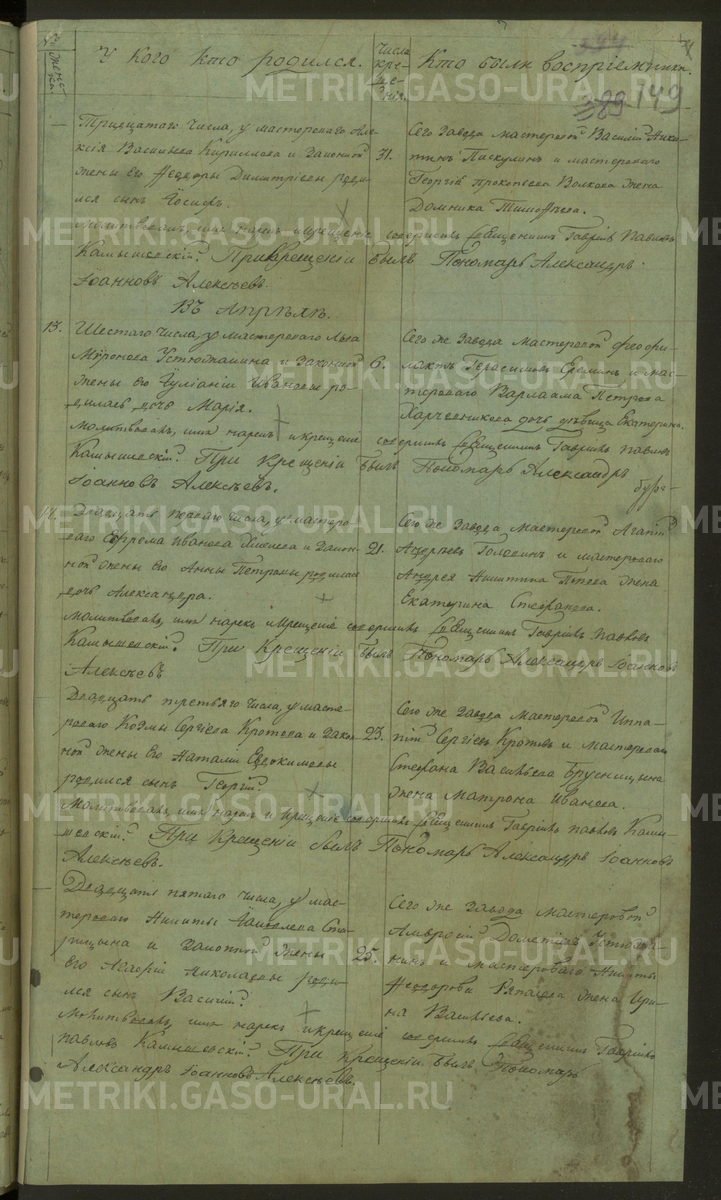 У кого кто родился.
Числа кре-
ще-
нія.
Кто были воспріемники.
149
389
Тридцатаго числа, у мастероваго Але-
ксія Васильева Кириллова и законной
жены его Ѳеодоры Димитріевы роди-
лся сынъ Іосифъ.
31.
Сего завода мастеровой Василій Ники-
тинъ Пискулинъ и мастероваго
Георгія Прокопьева Волкова жена
Домника Тимоѳеева.
Молитвовалъ, имя нарекъ и крещеніе совершилъ Священникъ Гавріилъ Павловъ
Камышевскій. При крещеніи былъ Пономарь Александръ
Іоанновъ Алексѣевъ.
Въ Апрѣлѣ.
13.
Шестаго числа, у мастероваго Льва
Миронова Устюжанина и законной
жены его Іуліаніи Ивановы ро-
дилась дочь Марія.
6.
Сего же завода мастеровой Ѳеофи-
лактъ Герасимовъ и мас-
тероваго Варлаама Петрова
Харчевникова дочь дѣвица Екатерина.
Молитвовалъ, имя нарекъ и крещеніе совершилъ Священникъ Гавріилъ Павловъ
Камышевскій. При крещеніи былъ Пономарь Александръ
Іоанновъ Алексѣевъ.
Двадцать перваго числа, у мастеро-
ваго Ефрема Иванова и закон-
ной жены его Анны Петровы родилась
дочь Александра.
21.
Сего же завода мастеровой Агапій
Андреевъ Головинъ и мастероваго
Андрея Никитина жена
Екатерина Стефанова.
Молитвовалъ, имя нарекъ и крещеніе совершилъ Священникъ Гавріилъ Павловъ
Камышевскій. При крещеніи былъ Пономарь Александръ Іоанновъ
Алексѣевъ
Двадцать третьяго числа, у масте-
роваго Козмы Сергіева Кротова и закон-
ной жены его Наталіи Евдокимовы
родился сынъ Георгій.
23.
Сего же завода мастеровой Иппа-
тій Сергіевъ Кротовъ и мастероваго
Стефана Васильева Брусницына
жена Матрона Иванова.
Молитвовалъ, имя нарекъ и крещеніе совершилъ Священникъ Гавріилъ Павловъ Камы-
шевскій. При крещеніи былъ Пономарь Александръ Іоанновъ
Алексѣевъ.
Двадцать пятаго числа, у мас-
тероваго Никиты Ста-
рицына и законной жены
его Николаевы роди-
лся сынъ Василій.
25.
Сего же завода мастеровой
Амвросій Дометіевъ Устюжа-
нинъ и мастероваго Никиты
Ѳеодорова жена Ири-
на Васильева.
Молитвовалъ, имя нарекъ и крещеніе совершилъ Священникъ Гавріилъ
Павловъ Камышевскій. При крещеніи былъ Пономарь
Александръ Іоанновъ Алексѣевъ.
METRIKI.GASO-URAL.RU